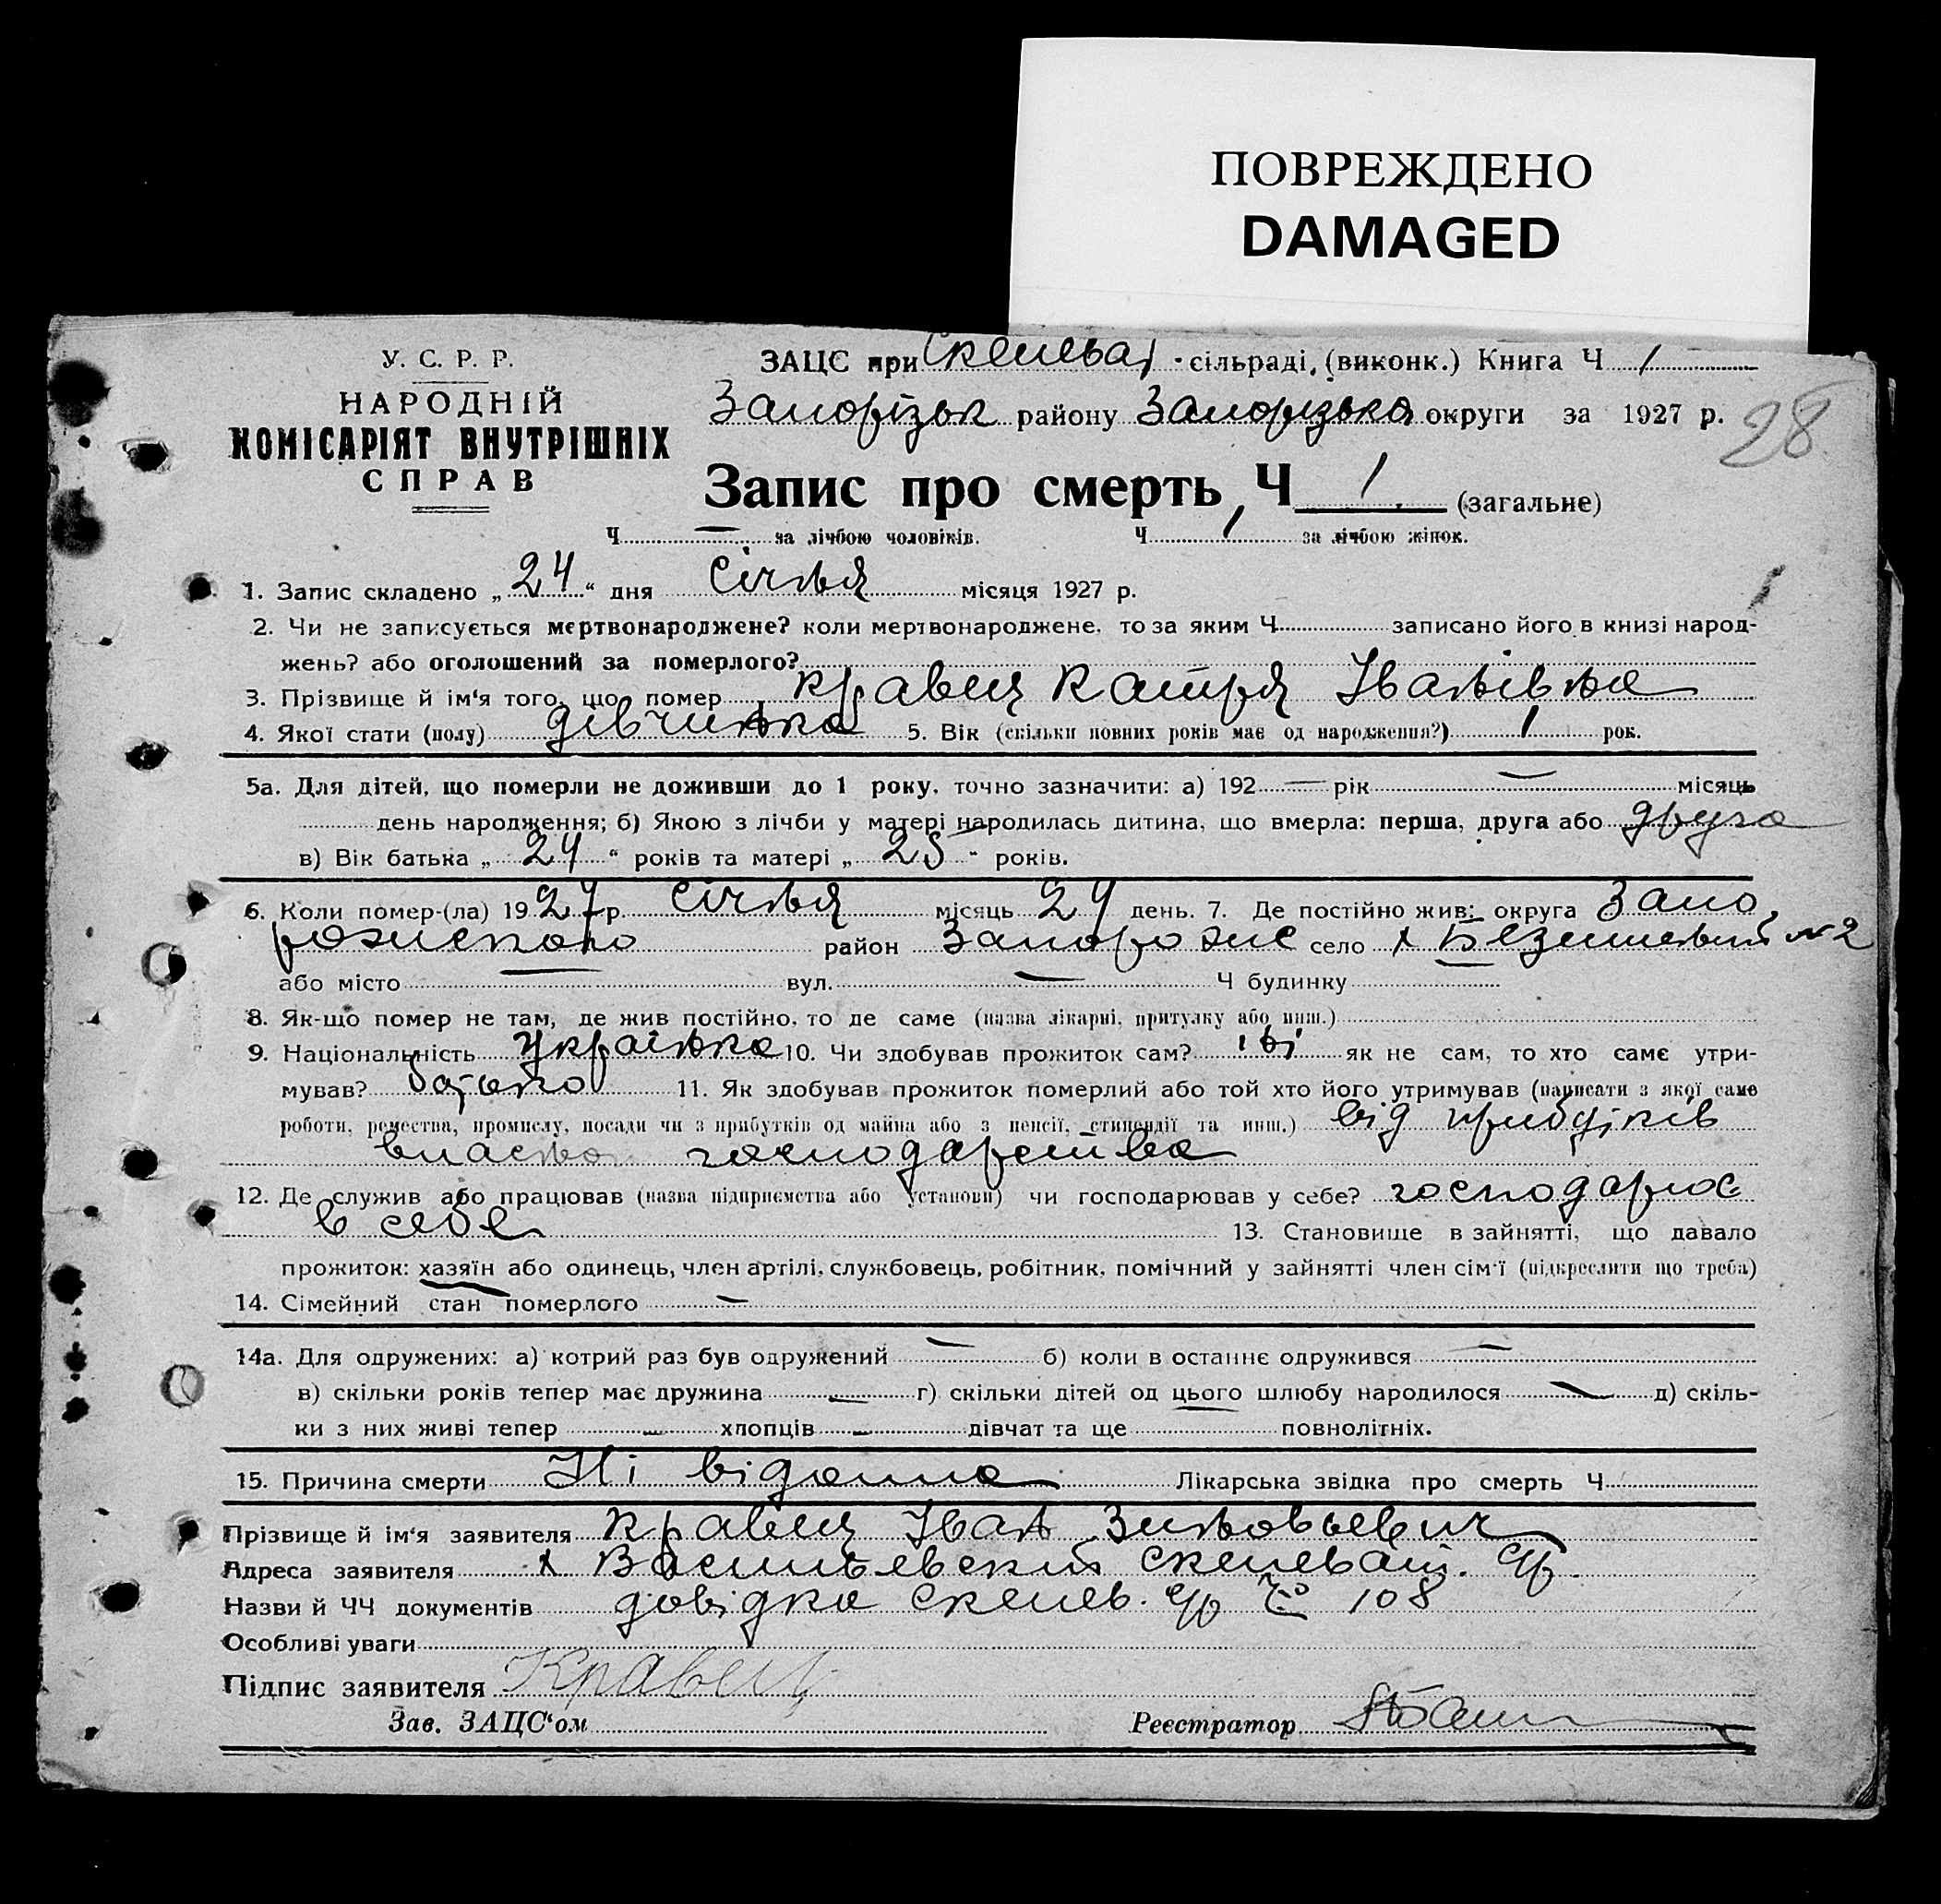 ПОВРЕЖДЕНО
DAMAGED
У. С. Р. Р.
НАРОДНІЙ
КОМІСАРІЯТ ВНУТРІШНІХ
СПРАВ
ЗАЦС при сільраді, (виконк.) Книга Ч 1
Запорізьк району Запорізька округи за 1927 р.
28
Запис про смерть, Ч 1. (загальне)
Ч — за лічбою чоловіків. Ч 1 за лічбою жінок.
1. Запис складено „24“ дня Січня місяця 1927 р.
2. Чи не записується мертвонароджене? коли мертвонароджене, то за яким Ч записано його в книзі народ-
жень? або оголошений за померлого?
3. Прізвище й ім'я того, що помер Кравец Катря Іванівна
4. Якої стати (полу) дівчинка 5. Вік (скільки повних років має од народження?) 1 рок.
5а. Для дітей, що померли не доживши до 1 року, точно зазначити: а) 192 — рік — місяць
день народження; б) Якою з лічби у матері народилась дитина, що вмерла: перша, друга або друга
в) Вік батька „24“ років та матері „25“ років.
6. Коли помер-(ла) 1927 р. Січня місяць день. 7. Де постійно жив: округа Запо
рожського район Запорожже село х №2
або місто — вул. — Ч будинку —
8. Як-що помер не там, де жив постійно, то де саме (назва лікарні, притулку або инш.)
9. Національність Українка 10. Чи здобував прожиток сам? ні як не сам, то хто саме утри-
мував? батько 11. Як здобував прожиток померлий або той хто його утримував (написати з якої саме
роботи, ремества, промислу, посади чи з прибутків од майна або з пенсії, стипендії та инш.) від прибутків
власного господарства
12. Де служив або працював (назва підприємства або установи) чи господарював у себе? господарює
в себе 13. Становище в зайнятті, що давало
прожиток: хазяїн або одинець, член артілі, службовець, робітник, помічний у зайнятті член сім'ї (підкреслити що треба)
14. Сімейний стан померлого —
14а. Для одружених: а) котрий раз був одружений — б) коли в останнє одружився —
в) скільки років тепер має дружина — г) скільки дітей од цього шлюбу народилося — д) скіль-
ки з них живі тепер — хлопців — дівчат та ще — повнолітніх.
15. Причина смерти Ні відомо Лікарська звідка про смерть Ч
Прізвище й ім'я заявителя Кравец Іван Зиновьевич
Адреса заявителя х
Назви й ЧЧ документів довідка Скелев. с/р № 108
Особливі уваги
Підпис заявителя Кравец
Зав. ЗАЦС'ом Реєстратор